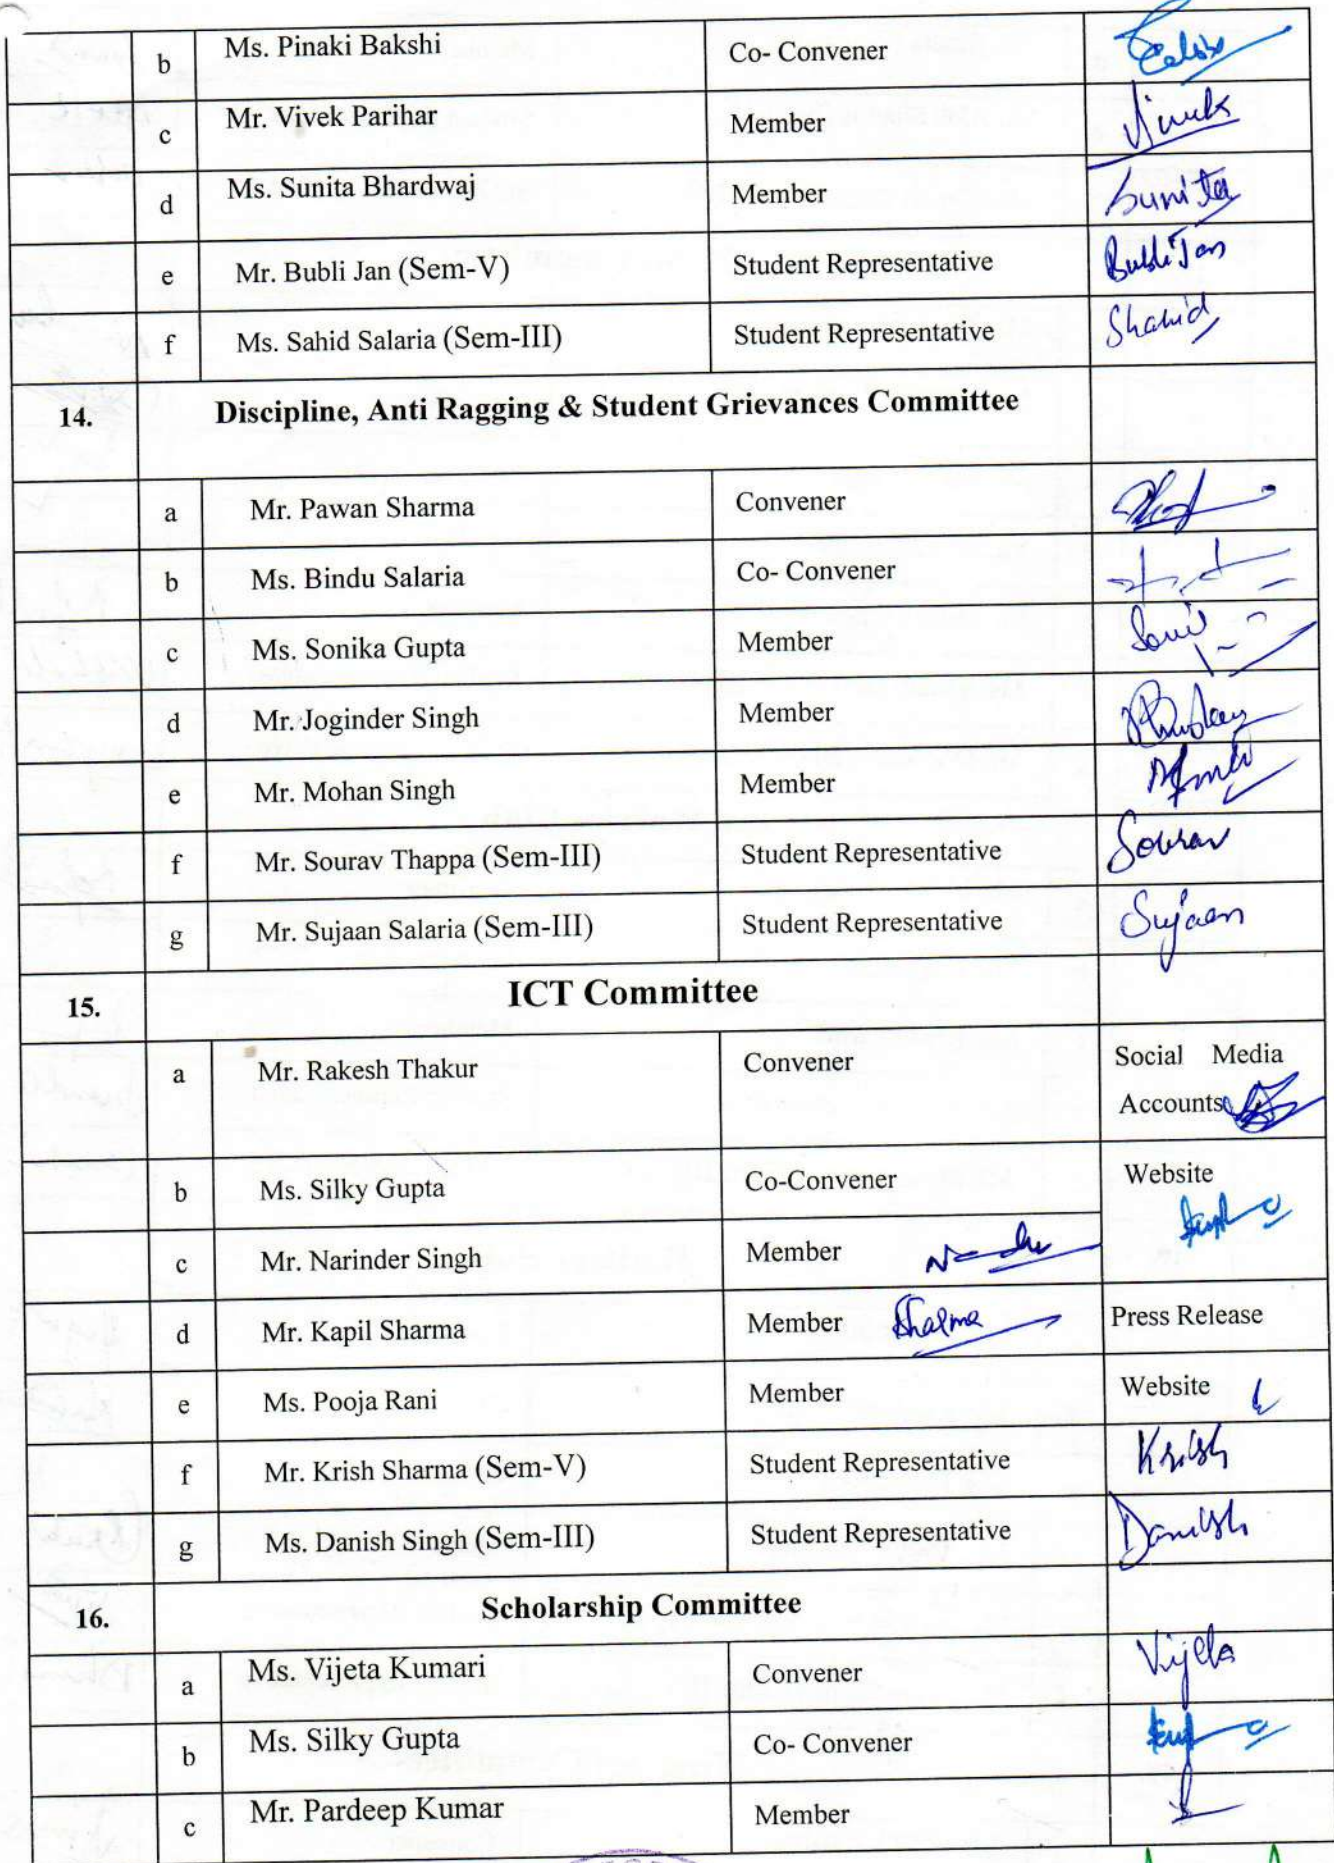 b Ms. Pinaki Bakshi Co- Convener
c Mr. Vivek Parihar Member Vivek
d Ms. Sunita Bhardwaj Member Sunita
e Mr. Bubli Jan (Sem-V) Student Representative Bubli Jan
f Ms. Sahid Salaria (Sem-III) Student Representative Shahid
14. Discipline, Anti Ragging & Student Grievances Committee
a Mr. Pawan Sharma Convener
b Ms. Bindu Salaria Co- Convener
c Ms. Sonika Gupta Member
d Mr. Joginder Singh Member
e Mr. Mohan Singh Member
f Mr. Sourav Thappa (Sem-III) Student Representative Sourav
g Mr. Sujaan Salaria (Sem-III) Student Representative Sujaan
15. ICT Committee
a Mr. Rakesh Thakur Convener Social Media
Accounts
b Ms. Silky Gupta Co-Convener Website
c Mr. Narinder Singh Member
d Mr. Kapil Sharma Member Sharma Press Release
e Ms. Pooja Rani Member Website
f Mr. Krish Sharma (Sem-V) Student Representative Krish
g Ms. Danish Singh (Sem-III) Student Representative Danish
16. Scholarship Committee
a Ms. Vijeta Kumari Convener Vijeta
b Ms. Silky Gupta Co- Convener
c Mr. Pardeep Kumar Member